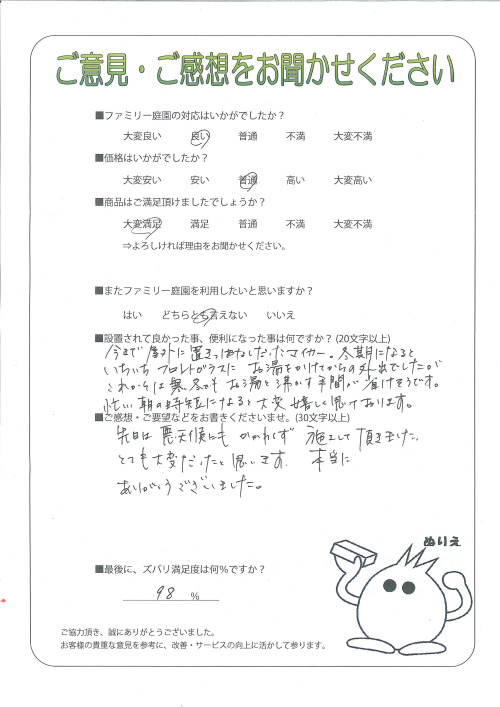 ご意見・ご感想をお聞かせください
■ファミリー庭園の対応はいかがでしたか？
大変良い 良い 普通 不満 大変不満
■価格はいかがでしたか？
大変安い 安い 普通 高い 大変高い
■商品はご満足頂けましたでしょうか？
大変満足 満足 普通 不満 大変不満
⇒よろしければ理由をお聞かせください。
■またファミリー庭園を利用したいと思いますか？
はい どちらとも言えない いいえ
■設置されて良かった事、便利になった事は何ですか？(20文字以上)
今まで屋外に置きっぱなしだったマイカー。冬期になると
いちいちフロントガラスにお湯をかけてからの外出でしたが
これからは寒冬でもお湯を沸かす手間が省けそうです。
忙しい朝の時短になると大変嬉しく思っております。
■ご感想・ご要望などをお書きくださいませ。(30文字以上)
先日は悪天候にもかかわらず施工して頂きました。
とても大変だったと思います。本当に
ありがとうございました。
ぬりえ
■最後に、ズバリ満足度は何%ですか？
98 %
ご協力頂き、誠にありがとうございました。
お客様の貴重な意見を参考に、改善・サービスの向上に活かして参ります。